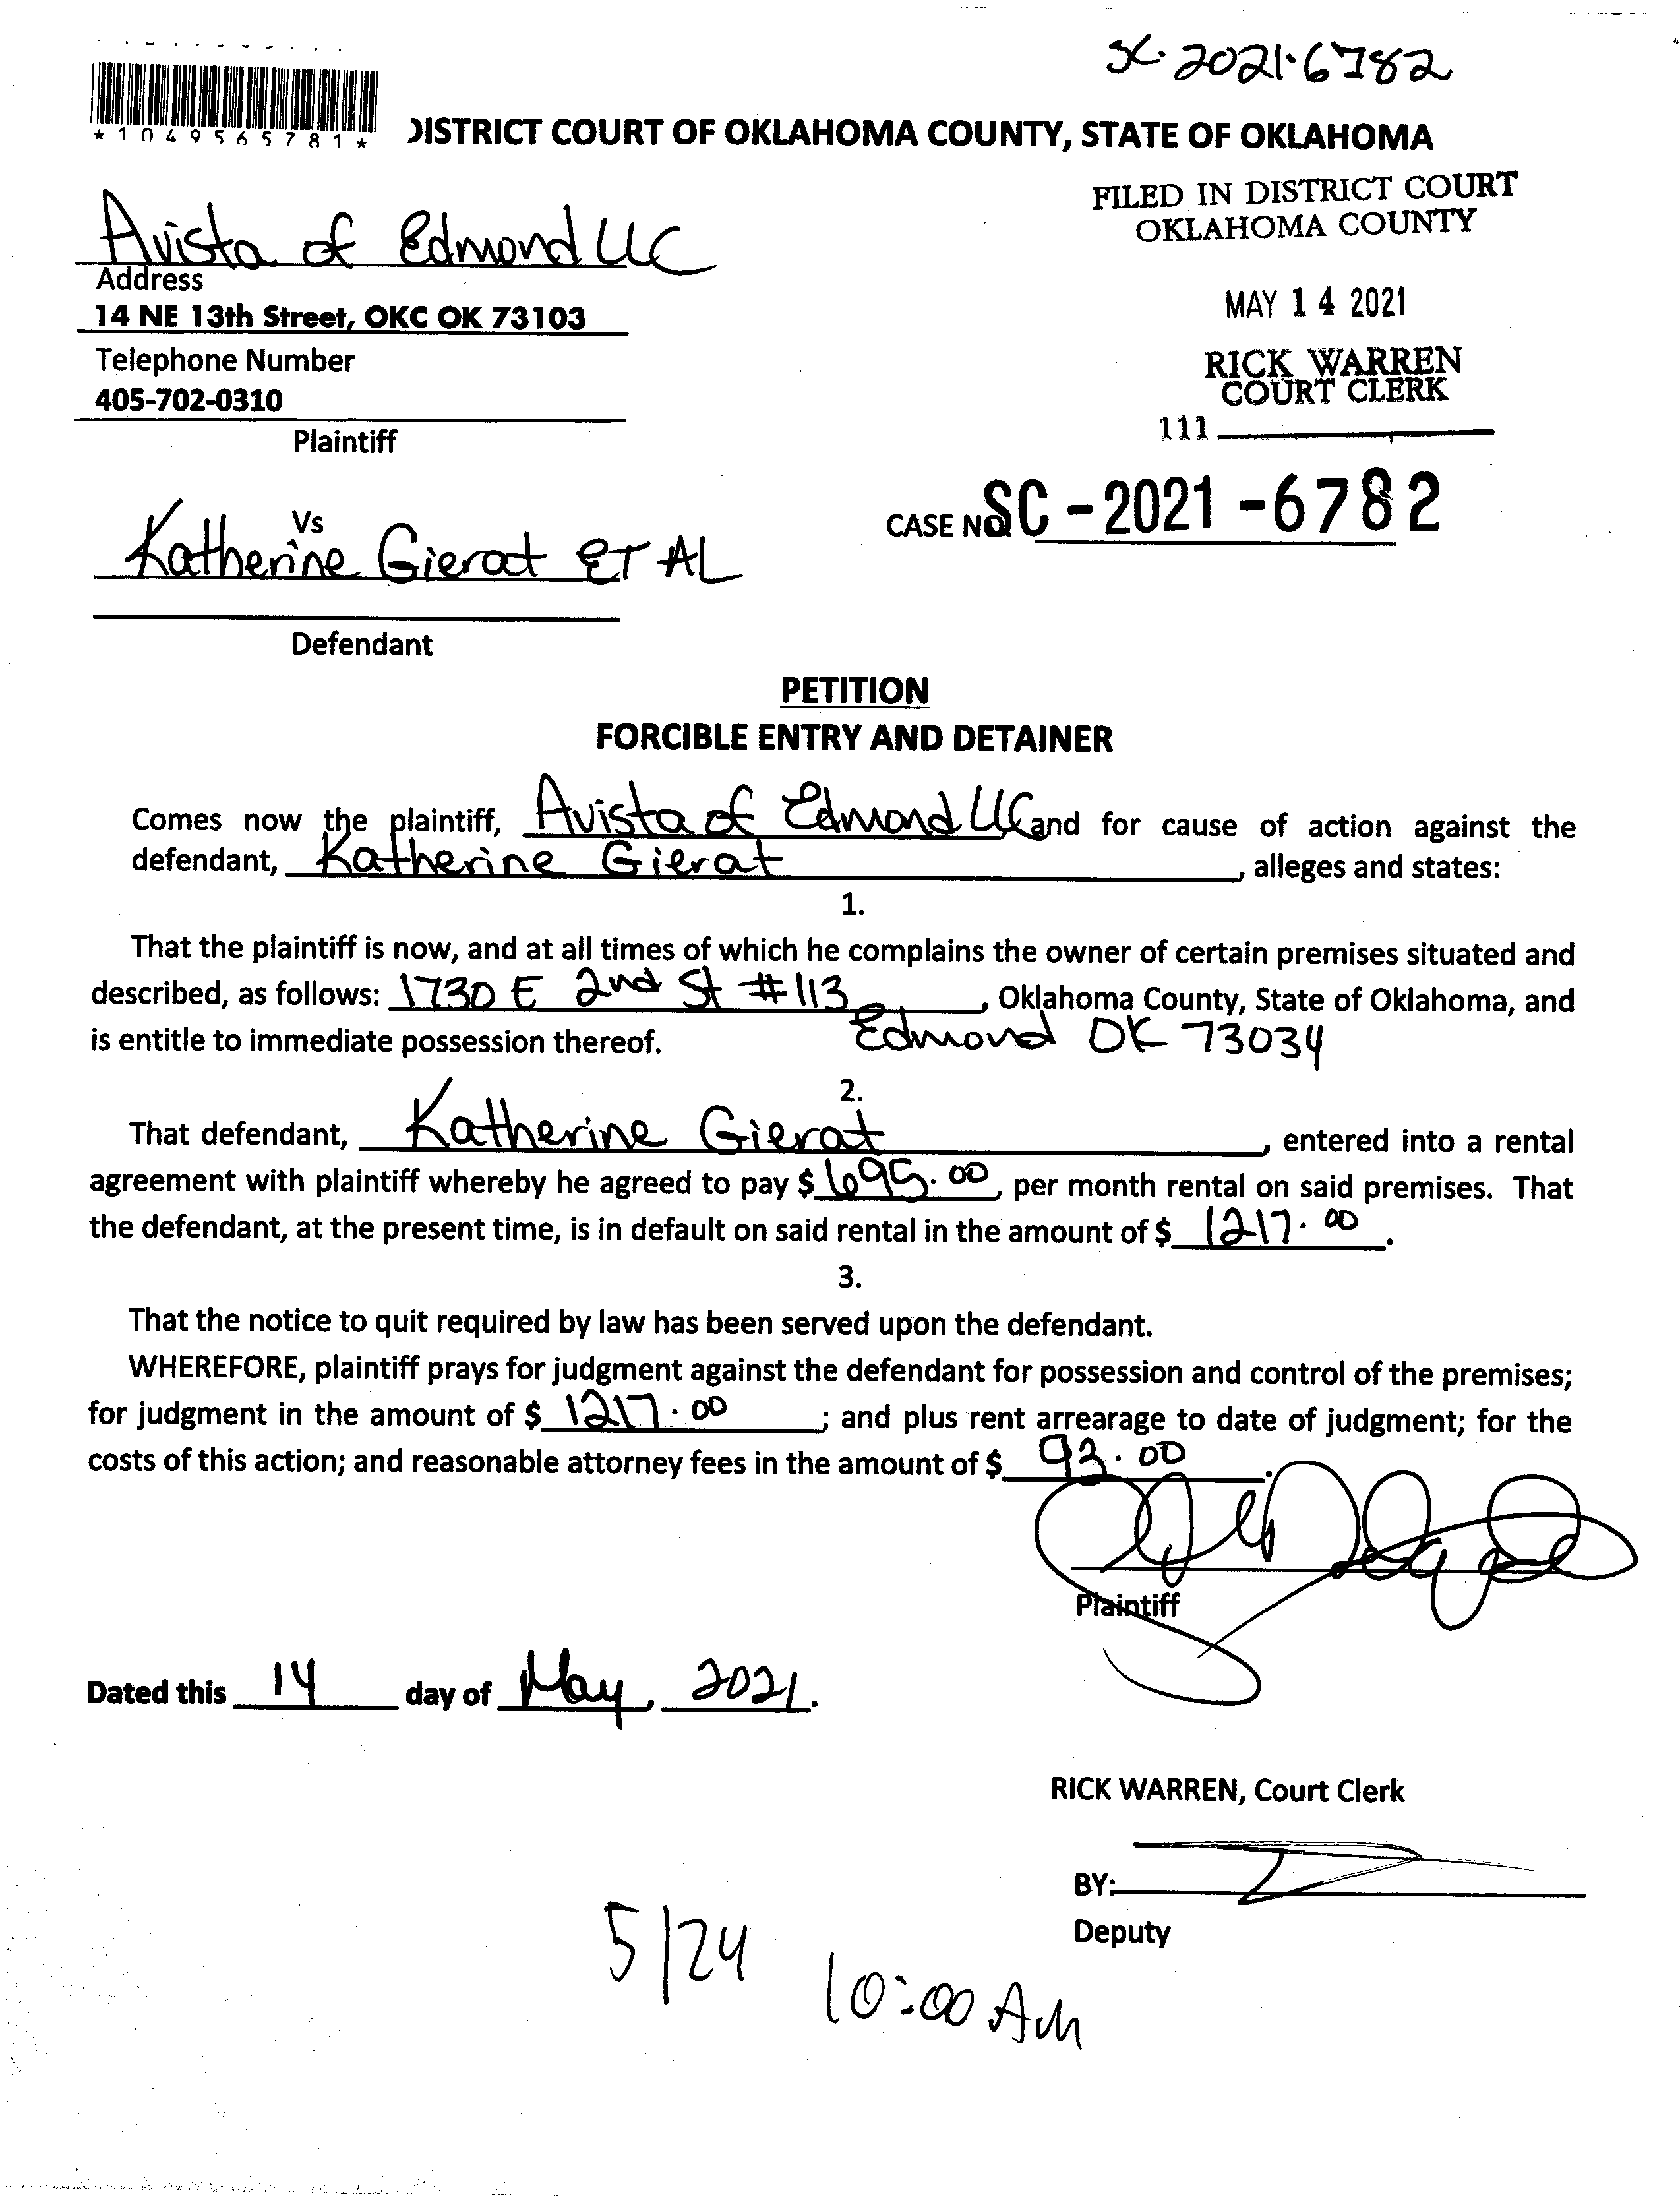 SC-2021-6782
*1049565781*
DISTRICT COURT OF OKLAHOMA COUNTY, STATE OF OKLAHOMA
FILED IN DISTRICT COURT
OKLAHOMA COUNTY
MAY 14 2021
RICK WARREN
COURT CLERK
111
Avista of Edmond LLC
Address
14 NE 13th Street, OKC OK 73103
Telephone Number
405-702-0310
Plaintiff
Vs
CASE NO. SC-2021-6782
Katherine Gierat ET AL
Defendant
PETITION
FORCIBLE ENTRY AND DETAINER
Comes now the plaintiff, Avista of Edmond LLC and for cause of action against the
defendant, Katherine Gierat, alleges and states:
1.
That the plaintiff is now, and at all times of which he complains the owner of certain premises situated and
described, as follows: 1730 E 2nd St #113, Oklahoma County, State of Oklahoma, and
is entitle to immediate possession thereof. Edmond OK 73034
2.
That defendant, Katherine Gierat, entered into a rental
agreement with plaintiff whereby he agreed to pay $ 695.00, per month rental on said premises. That
the defendant, at the present time, is in default on said rental in the amount of $ 1217.00.
3.
That the notice to quit required by law has been served upon the defendant.
WHEREFORE, plaintiff prays for judgment against the defendant for possession and control of the premises;
for judgment in the amount of $ 1217.00; and plus rent arrearage to date of judgment; for the
costs of this action; and reasonable attorney fees in the amount of $ 93.00.
Plaintiff
Dated this 14 day of May, 2021.
RICK WARREN, Court Clerk
BY:
Deputy
5/24
10:00 AM